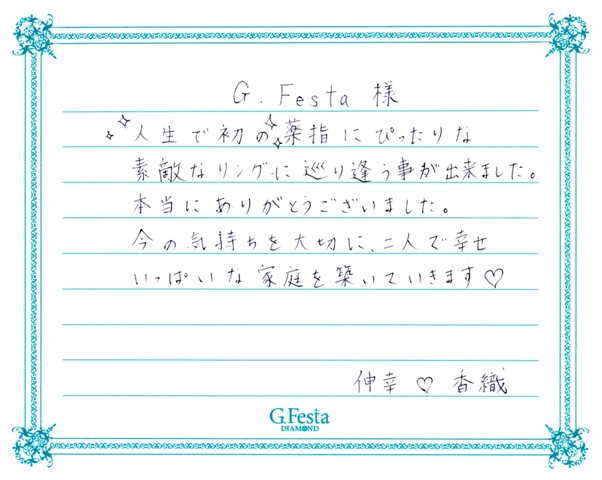 G.Festa 様
人生で初の薬指にぴったりな
素敵なリングに巡り逢う事が出来ました。
本当にありがとうございました。
今の気持ちを大切に、二人で幸せ
いっぱいな家庭を築いていきます♡
伸幸 ♡ 香織
G.Festa
DIAMOND